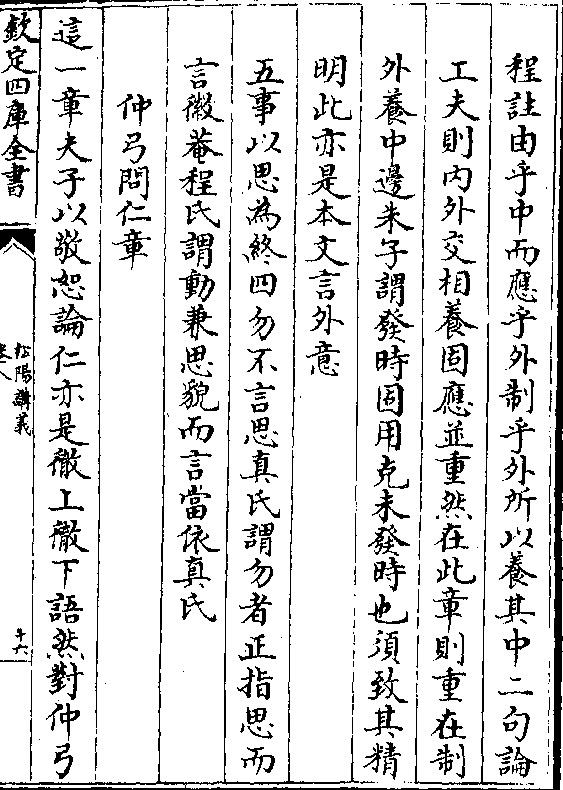 程註由乎中而應乎外制乎外所以養其中二句論
工夫則內外交相養固應並重然在此章則重在制
外養中邊朱子謂發時固用克未發時也須致其精
明此亦是本文言外意
五事以思為終四勿不言思真氏謂勿者正指思而
言徽菴程氏謂動兼思貌而言當依真氏
仲弓問仁章
這一章夫子以敬恕論仁亦是徹上徹下語然對仲弓
欽定四庫全書
松陽講義